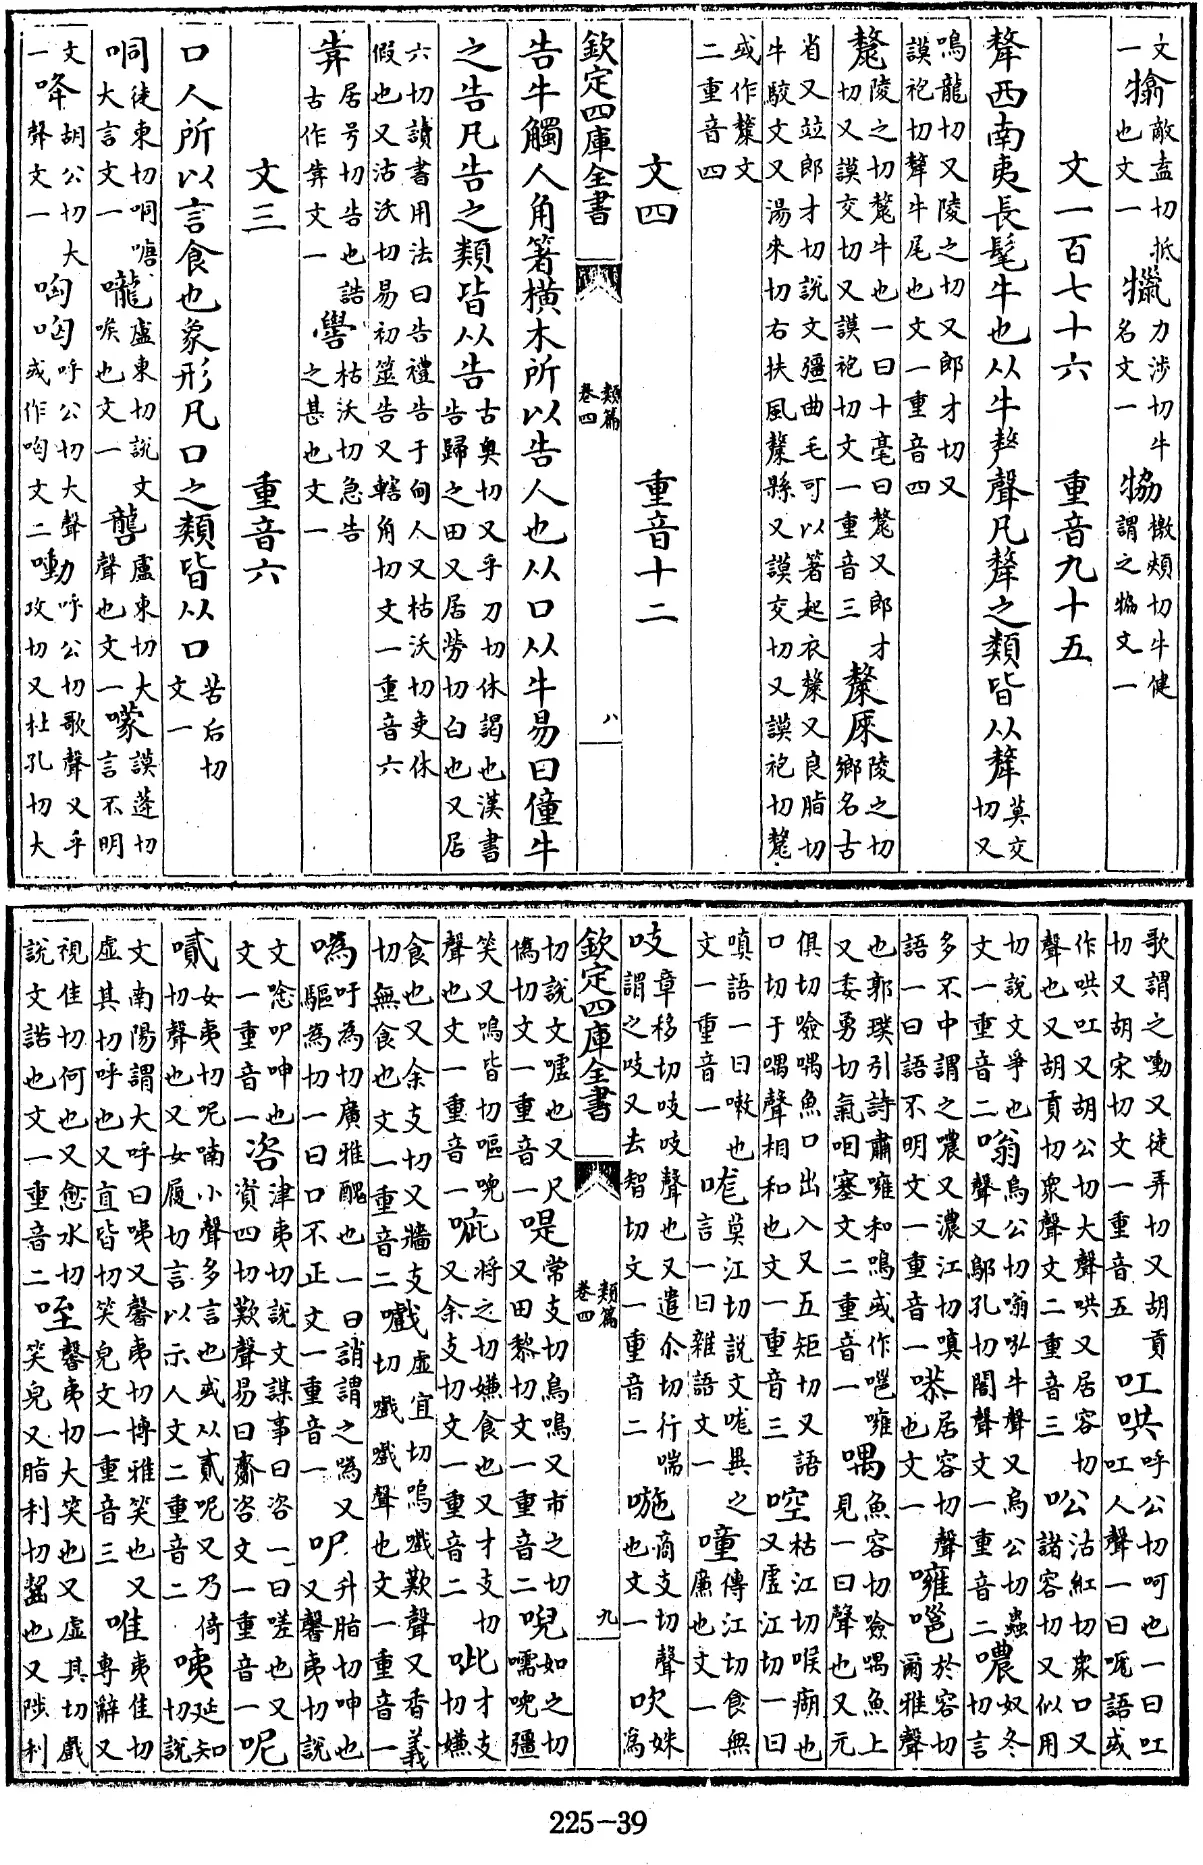 文一　敵盍切抵也文一犣力涉切牛名文一㹂檄頰切牛健謂之㹂文一
文一百七十六　重音九十五
犛西南夷長髦牛也从牛𠩺聲凡犛之類皆从犛莫交切又
鳴龍切又陵之切又郎才切又謨袍切犛牛尾也文一重音四
氂陵之切氂牛也一曰十毫曰氂又郎才切又謨交切又謨袍切文一重音三斄𠩺陵之切鄉名古
省又竝郎才切說文彊曲毛可以著起衣斄又良脂切牛駮文又湯來切右扶風斄縣又謨交切又謨袍切氂
或作斄文二重音四
文四　重音十二
欽定四庫全書　類篇　卷四　八
告牛觸人角箸橫木所以告人也从口从牛易曰僮牛
之告凡告之類皆从告古奧切又乎刀切休謁也漢書告歸之田又居勞切白也又居
六切讀書用法曰告禮告于甸人又枯沃切吏休假也又沽沃切易初筮告又轄角切文一重音六
靠居号切告也誥古作靠文一嚳枯沃切急告之甚也文一
文三　重音六
口人所以言食也象形凡口之類皆从口苦后切文一
哃徒東切哃嘡大言文一嚨盧東切說文喉也文一　盧東切大聲也文一　謨蓬切言不明
文一　胡公切大聲文一　呼公切大聲或作哅文二㗢呼公切歌聲又乎攻切又杜孔切大
歌謂之㗢又徒弄切又胡貢切又胡宋切文一重音五吅哄呼公切呵也一曰吅吅人聲一曰呃語或
作哄吅又胡公切大聲哄又居容切聲也又胡貢切衆聲文二重音三㕬沽紅切衆口又諸容切又似用
切說文爭也文一重音二嗡烏公切嗡吰牛聲又烏公切蟲聲又鄔孔切閤聲文一重音二噥奴冬切言
多不中謂之噥又濃江切嗔語一曰語不明文一重音一㳟居容切聲也文一嗈嗈於容切爾雅聲
也郭璞引詩肅雝和鳴或作嗈嗈又委勇切氣咽塞文二重音一喁魚容切噞喁魚上見一曰聲也又元
俱切噞喁魚口出入又五矩切又語口切于喁聲相和也文一重音三啌枯江切喉痛也又虛江切一曰
嗔語一曰嗽也文一重音一哤莫江切說文哤異之言一曰雜語文一噇傳江切食無廉也文一
吱章移切吱吱聲也又遣尒切行喘謂之吱又去智切文一重音二㗿商支切聲也文一吹姝為
欽定四庫全書　類篇　卷四　九
切說文噓也又尺偽切文一重音一㖷常支切鳥鳴又市之切又田黎切文一重音二唲如之切嚅唲彊
笑又鳴皆切嘔唲聲也文一重音一㗱將之切嫌食也又才支切又余支切文一重音二呲才支切嫌
食也又余支切又牆支切無食也文一重音二嚱虛宜切嗚嚱歎聲又香義切嚱嚱聲也文一重音一
噅吁為切廣雅醜也一曰誚謂之噅又驅為切一曰口不正文一重音一吚升脂切呻也又馨夷切說
文唸吚呻也文一重音一咨津夷切說文謀事曰咨一曰嗟也又資四切歎聲易曰齎咨文一重音一呢
　女夷切呢喃小聲多言也或从貳呢又乃倚切聲也又女履切言以示人文二重音二咦延知切說
文南陽謂大呼曰咦又馨夷切博雅笑也又虛其切呼也又直皆切笑皃文一重音三唯夷佳切專辭又
視佳切何也又愈水切說文諾也文一重音二咥馨夷切大笑也又虛其切戲笑皃又脂利切齧也又陟利
225-39